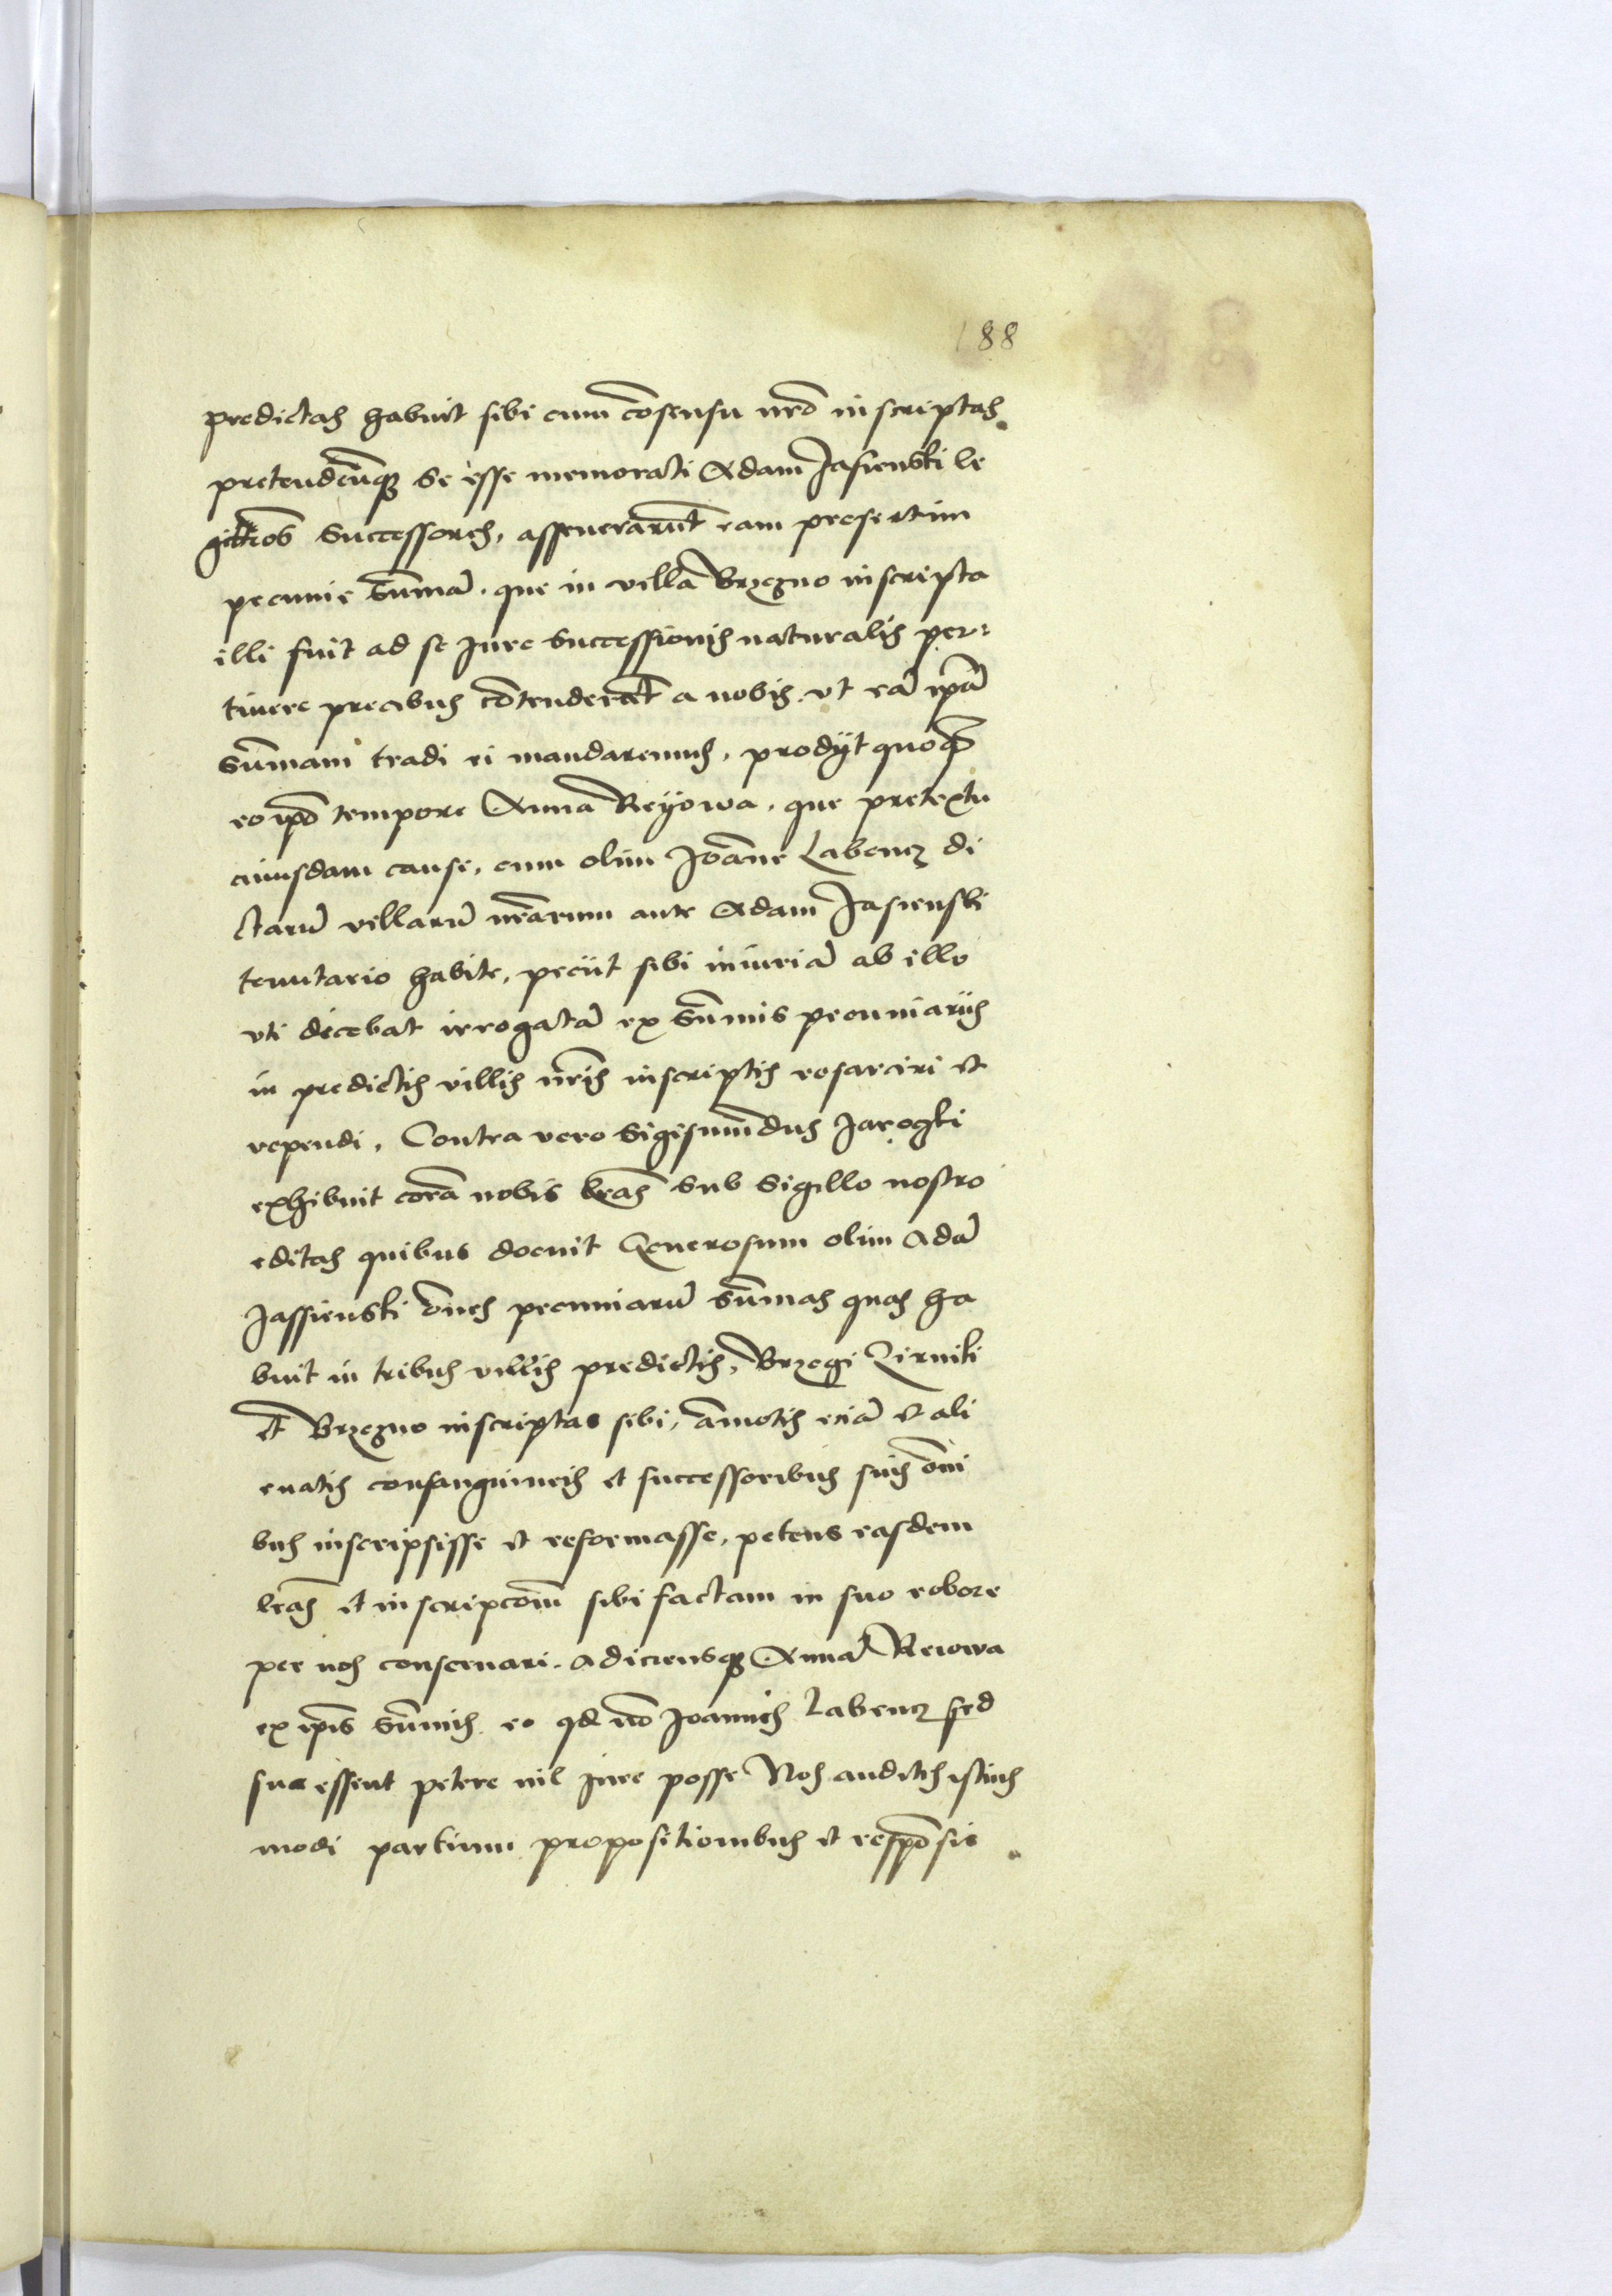 188
predictas habuit sibi cum cōsensu nrō inscriptas
pretendeñq₃ se esse memorati Adam Jasienski le
gittīos successores, asseuerarūt eam presertim
pecunie sūmā, que in villa Brzegno inscripta
illi fuit ad se Jure successionis naturalis per-
tinere precibus cōtenderāt a nobis. vt eā ipā
sūmam tradi ei mandaremus, prodÿt quoq₃
eo ipō tempore Anna Reÿowa, que pretextu
cuiusdam cause, cum olim Joāne Labencz di
ctarū villarū nrārum ante Adam Jasienski
tenutario habite, peciit sibi iniuriā ab illo
vti dicebat irrogatā ex sūmis pecuniariis
in predictis villis nrīs inscriptis resarciri et
rependi, Contra vero Sigismūdus Jarogki
exhibuit corā nobis lrās sub sigillo nostro
editas quibus docuit Generosum olim Adā
Jassienski ōnes pecuniarū sūmas quas ha
buit in tribus villis predictis, Brzegi Zirniki
Et Brzegno inscriptas sibi, āmotis eciā et ali
enatis consanguineis et successoribus suis ōni
bus inscripsisse et reformasse, petens easdem
lrās et inscripcōm̄ sibi factam in suo robore
per nos conseruari. Adiciensq₃ Annā Reiowa
ex ipīs sūmis eo qd nō Joannis Labencz sed
sua essent petere nil Jure posse Nos auditis istius
modi partium propositionibus et respōsis